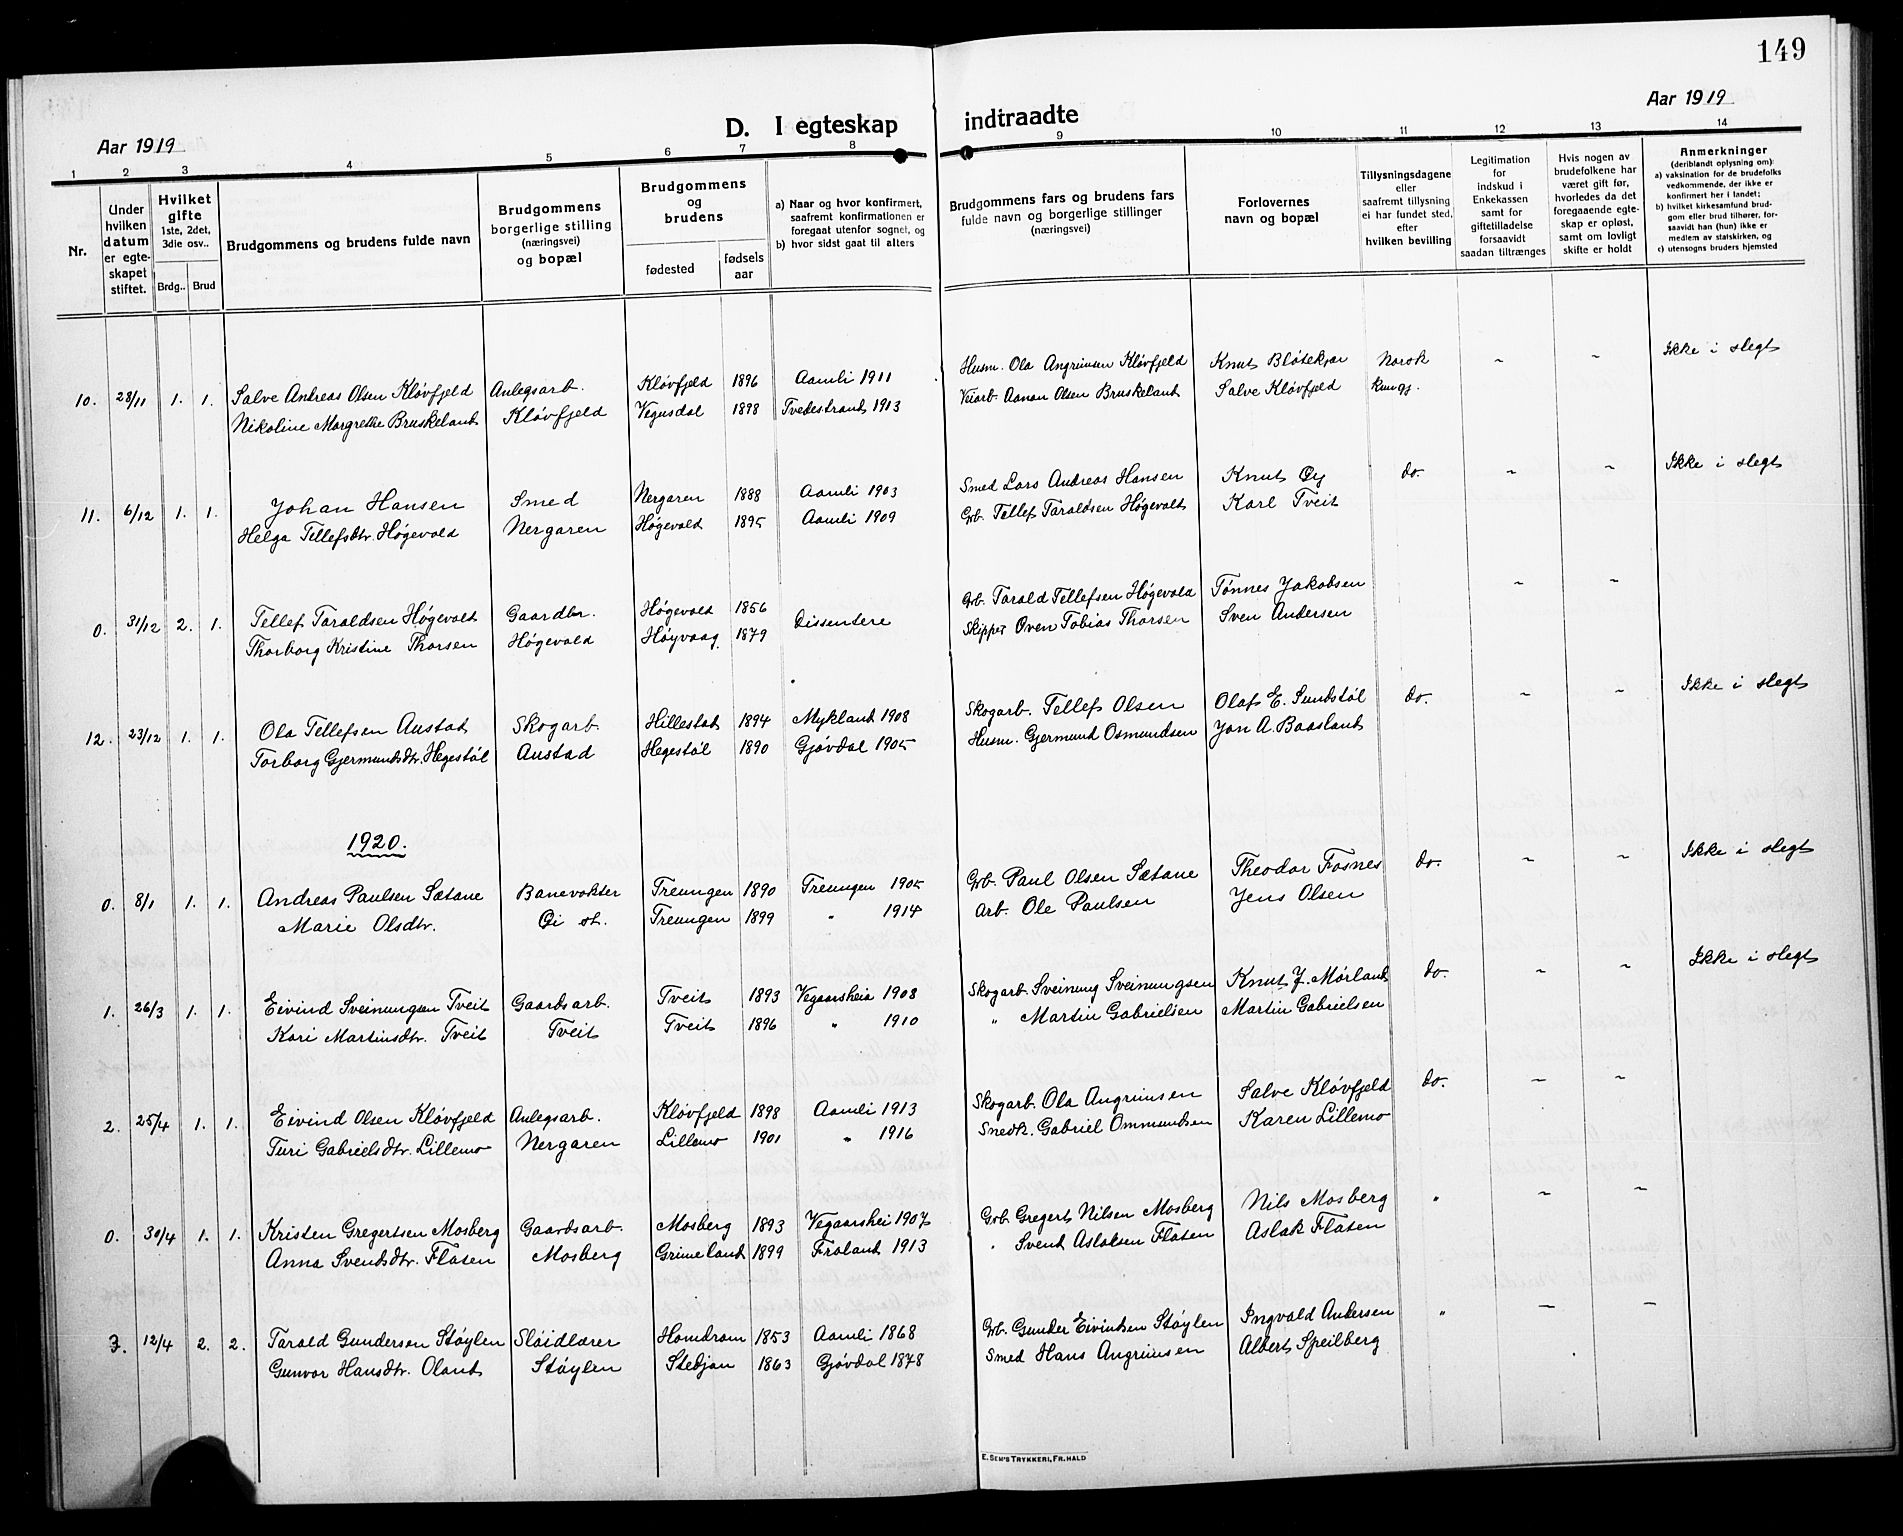 149
Aar 1919
Aar 1919
D. I egteskap indtraadte
1 2 3 4 5 6 7 8 9 10 11 12 13 14
Nr.
Under hvilken datum er egteskapet stiftet.
Hvilket gifte 1ste, 2det, 3die osv..
Brdg.. Brud
Brudgommens og brudens fulde navn
Brudgommens borgerlige stilling (næringsvei) og bopæl
Brudgommens og brudens
fødested
fødselsaar
a) Naar og hvor konfirmert, saafremt konfirmationen er foregaat utenfor sognet, og
b) hvor sidst gaat til alters
Brudgommens fars og brudens fars fulde navn og borgerlige stillinger (næringsvei)
Forlovernes navn og bopæl
Tillysningsdagene eller saafremt tillysning ei har fundet sted, efter hvilken bevilling
Legitimation for indskud i Enkekassen samt for giftetilladelse forsaavidt saadan tiltrænges
Hvis nogen av brudefolkene har været gift før, hvorledes da det foregaaende egteskap er opløst, samt om lovligt skifte er holdt
Anmerkninger (deriblandt oplysning om):
a) vaksination for de brudefolks vedkommende, der ikke er konfirmert her i landet;
b) hvilket kirkesamfund brudgom eller brud tilhører, forsaavidt han (hun) ikke er medlem av statskirken, og
c) utensogns bruders hjemsted
10. 28/11 1. 1. Salve Andreas Olsen Kløvfjeld Anlegsarb. Kløvfjeld 1896 Aamli 1911 Husm. Ola Angrimsen Kløvfjeld Knut Bløtekjær Norsk ~ ~ Ikke i slegt
Nikoline Margrethe Bruskeland Kløvfjeld Vegusdal 1898 Tvedestrand 1913 Veiarb. Aanon Olsen Bruskeland Salve Kløvfjeld kungj.
11. 6/12 1. 1. Johan Hansen Smed Nergaren 1888 Aamli 1903 Smed Lars Andreas Hansen Knut Øy do. ~ ~ Ikke i slegt
Helga Tellefsdtr. Høgevold Nergaren Høgevold 1895 Aamli 1909 Grb. Tellef Taraldsen Høgevold Karl Tveit
0. 31/12 2. 1. Tellef Taraldsen Høgevold Gaardbr. Høgevold 1856 Dissentere Grb. Tarald Tellefsen Høgevold Tønnes Jakobsen ~ ~
Thorborg Kristine Thorsen Høgevold Høyvaag 1879 Skipper Oven Tobias Thorsen Sven Andersen
12. 23/12 1. 1. Ola Tellefsen Austad Skogarb. Hillestad 1894 Mykland 1908 Skogarb. Tellef Olsen Olaf E. Sundstøl do. ~ ~ Ikke i slegt
Torborg Gjermundsdtr. Hegestøl Austad Hegestøl 1890 Gjøvdal 1905 Husm. Gjermund Osmundsen Jon A. Baasland
1920.
0. 8/1 1. 1. Andreas Paulsen Sætane Banevokter Treungen 1890 Treungen 1905 Grb. Paul Olsen Sætane Theodor Fosnes do. ~ ~ Ikke i slegt
Marie Olsdtr. Øi st. Treungen 1899 " 1914 Arb. Ole Paulsen Jens Olsen
1. 26/3 1. 1. Eivind Sveinungsen Tveit Gaardsarb. Tveit 1893 Vegaarshei 1908 Skogarb. Sveinung Sveinungsen Knut J. Mørland do. ~ ~ Ikke i slegt
Kari Martinsdtr. Tveit Tveit Tveit 1896 " 1910 " Martin Gabrielsen Martin Gabrielsen
2. 25/4 1. 1. Eivind Olsen Kløvfjeld Anlegsarb. Kløvfjeld 1898 Aamli 1913 Skogarb. Ola Angrimsen Salve Kløvfjeld do. ~ ~
Turi Gabrielsdtr. Lillemo Nergaren Lillemo 1901 " 1916 Snedk. Gabriel Ommundsen Karen Lillemo
0. 30/4 1. 1. Kristen Gregertsen Mosberg Gaardsarb. Mosberg 1893 Vegaarshei 1907 Grb. Gregert Nilsen Mosberg Nils Mosberg " ~ ~
Anna Svendsdtr. Flaten Mosberg Grimeland 1899 Froland 1913 " Svend Aslaksen Flaten Aslak Flaten
3. 12/4 2. 2. Tarald Gundersen Støylen Sløidlærer Homdrom 1853 Aamli 1868 Grb. Gunder Eivindsen Støylen Ingvald Andersen " — —
Gunvor Hansdtr. Oland Støylen Stedjan 1863 Gjøvdal 1878 Smed Hans Angrimsen Albert Speilberg
E. SEM'S TRYKKERI, FR.HALD